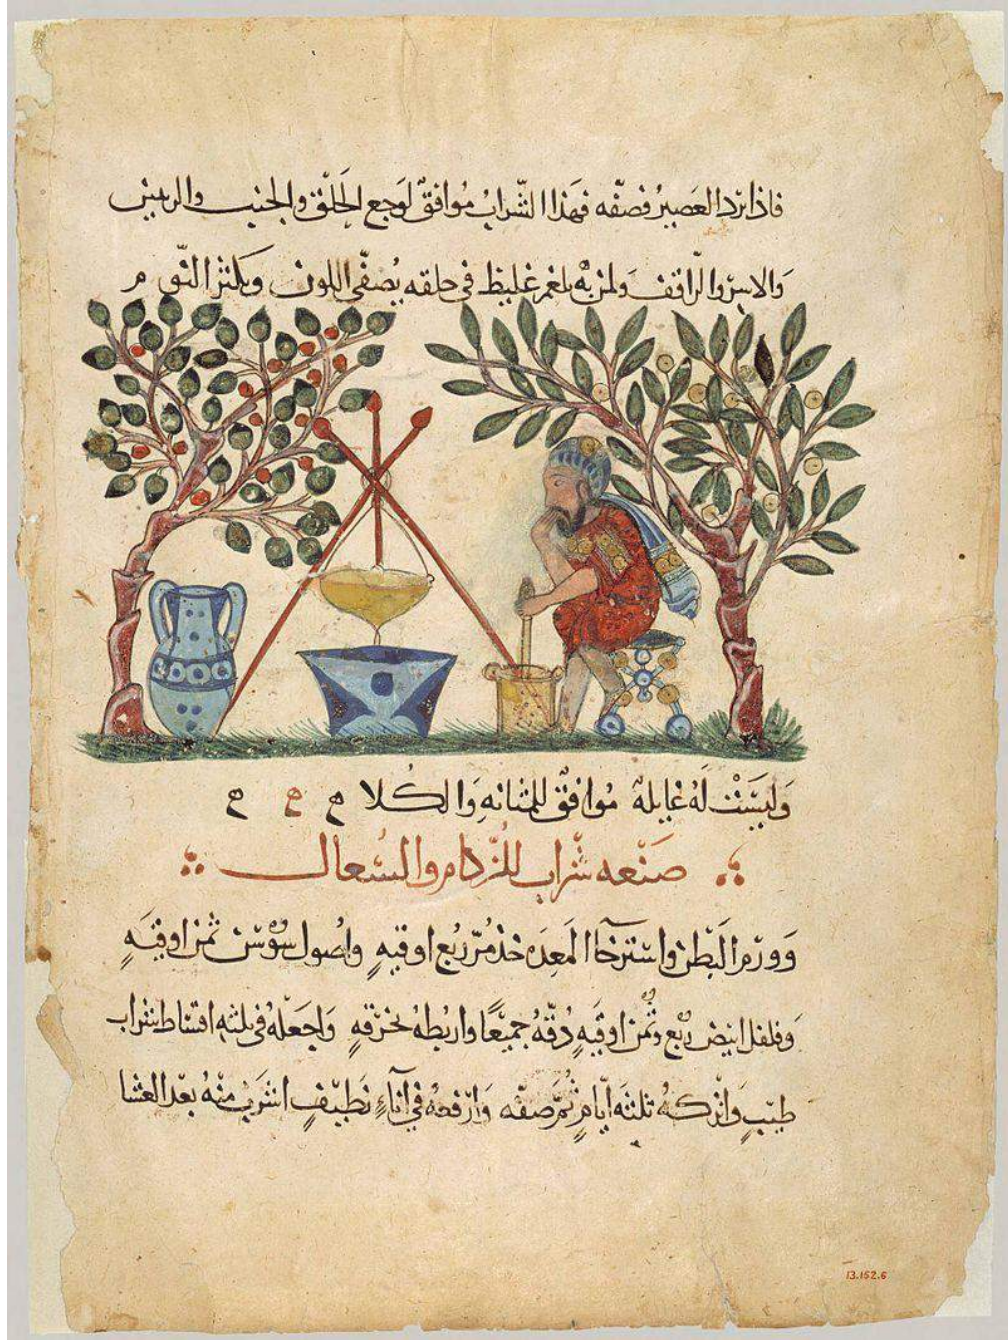 فاذا برد العَصيرُ فصفّه فهَذا الشّرابُ مُوافقٌ لوَجع الحَلق والجنب والريتين
وَالاسترالراقف ولمن به بلغم غليظ في حلقه يُصفّي اللون ويكثر النّوم
وَليسَتْ لَهُ غايله مُوافقٌ للمثانهِ وَالكُلا ح ح ح
صَنْعه شراب للزّكام والسُعال
وَورَم البَطن واسترخا المَعِدَه خذ مُرّ ربُع اوقيهٍ واصُول سُوسَن ثمن اوقيَهٍ
وَفلفل ابيض ربُع وثُمن اوقيَهٍ دُقّهُ جَميعًا واربُطهُ بخرقهٍ وَاجعَلهُ في ثلثه اقساط شراب
طيّبٍ وَاتركهُ ثلثَه ايّامٍ ثُمّ صفّه وَارْفعهُ في اناءٍ نَظيفٍ اشرَب منْهُ بعْد العَشا
13.152.6